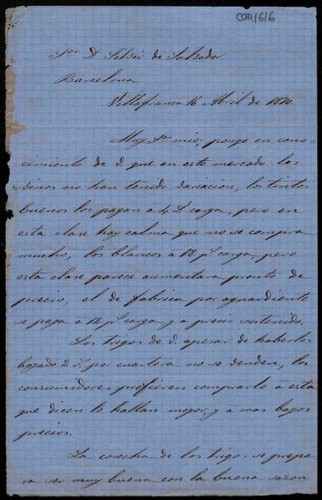 COR/6/6
Sor D. Silvio de Salvador
Barcelona
Villafranca 16 Abril de 1880
Muy Sr. mio, pongo en cono-
cimiento de V. que en este mercado los
vinos no han tenido variacion, los tintos
buenos los pagan a 4 D. carga, pero en
esta clase hay calma que no se compra
mucho, los blancos a 18 p. carga, pero
esta clase parece aumentara pronto de
precio, el de fabrica por aguardiente
se paga a 12 p. carga y a precio sostenido.
Los trigos de V. apesar de haberlos
bajado 2 por cuartera no se venden, los
consumidores prefieren comprarlo a esta
que dicen lo hallan mejor, y a mas bajos
precios.
La cosecha de los trigos se prepa
ra ser muy buena con la buena sazon